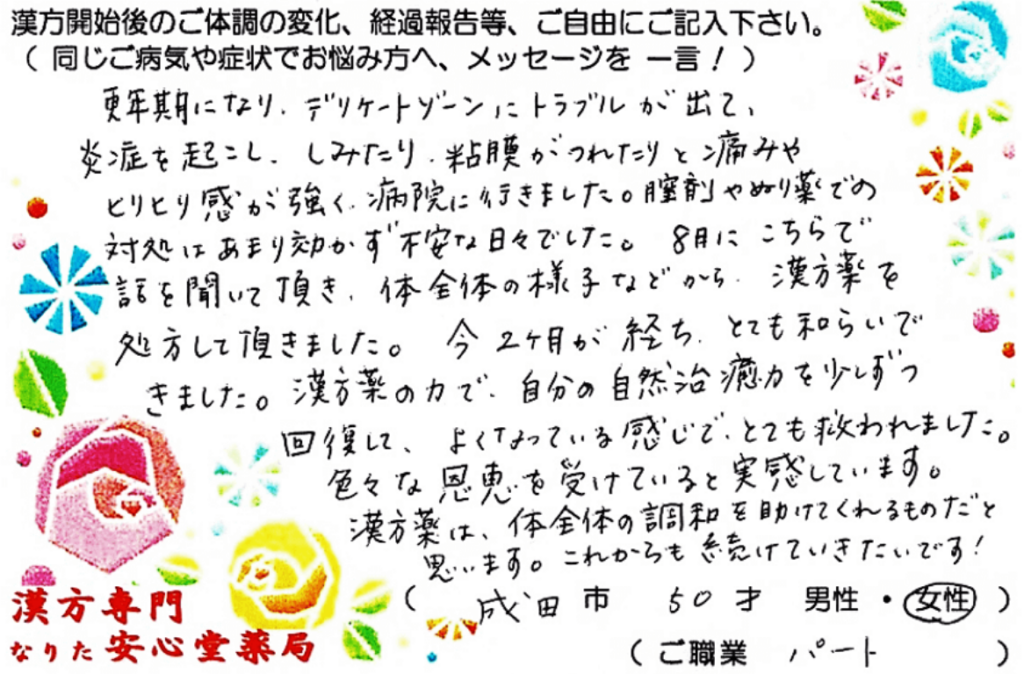 漢方開始後のご体調の変化、経過報告等、ご自由にご記入下さい。
（ 同じご病気や症状でお悩み方へ、メッセージを 一言！ ）
更年期になり、デリケートゾーンにトラブルが出て、
炎症を起こし、しみたり、粘膜がつれたりと痛みや
ヒリヒリ感が強く、病院に行きました。膣剤やぬり薬での
対処はあまり効かず不安な日々でした。8月にこちらで
話を聞いて頂き、体全体の様子などから、漢方薬を
処方して頂きました。今2ヶ月が経ち、とても和らいで
きました。漢方薬の力で、自分の自然治癒力を少しずつ
回復して、よくなっている感じで、とても救われました。
色々な恩恵を受けていると実感しています。
漢方薬は、体全体の調和を助けてくれるものだと
思います。これからも続けていきたいです！
（ 成田市 50才 男性・女性 ）
（ご職業 パート ）
漢方専門
なりた安心堂薬局